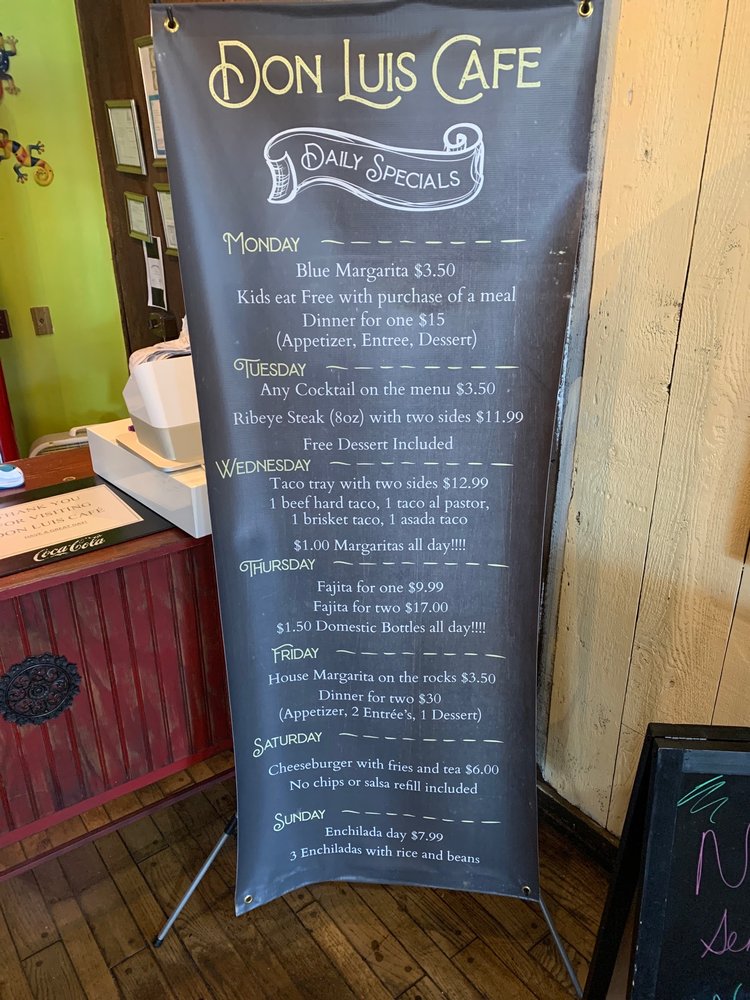 Don Luis Cafe
Daily Specials
Monday
Blue Margarita $3.50
Kids eat Free with purchase of a meal
Dinner for one $15
(Appetizer, Entree, Dessert)
Tuesday
Any Cocktail on the menu $3.50
Ribeye Steak (8oz) with two sides $11.99
Free Dessert Included
Wednesday
Taco tray with two sides $12.99
1 beef hard taco, 1 taco al pastor,
1 brisket taco, 1 asada taco
$1.00 Margaritas all day!!!!
Thursday
Fajita for one $9.99
Fajita for two $17.00
$1.50 Domestic Bottles all day!!!!
Friday
House Margarita on the rocks $3.50
Dinner for two $30
(Appetizer, 2 Entrée's, 1 Dessert)
Saturday
Cheeseburger with fries and tea $6.00
No chips or salsa refill included
Sunday
Enchilada day $7.99
3 Enchiladas with rice and beans
THANK YOU
FOR VISITING
DON LUIS CAFÉ
HAVE A GREAT DAY!
Coca-Cola